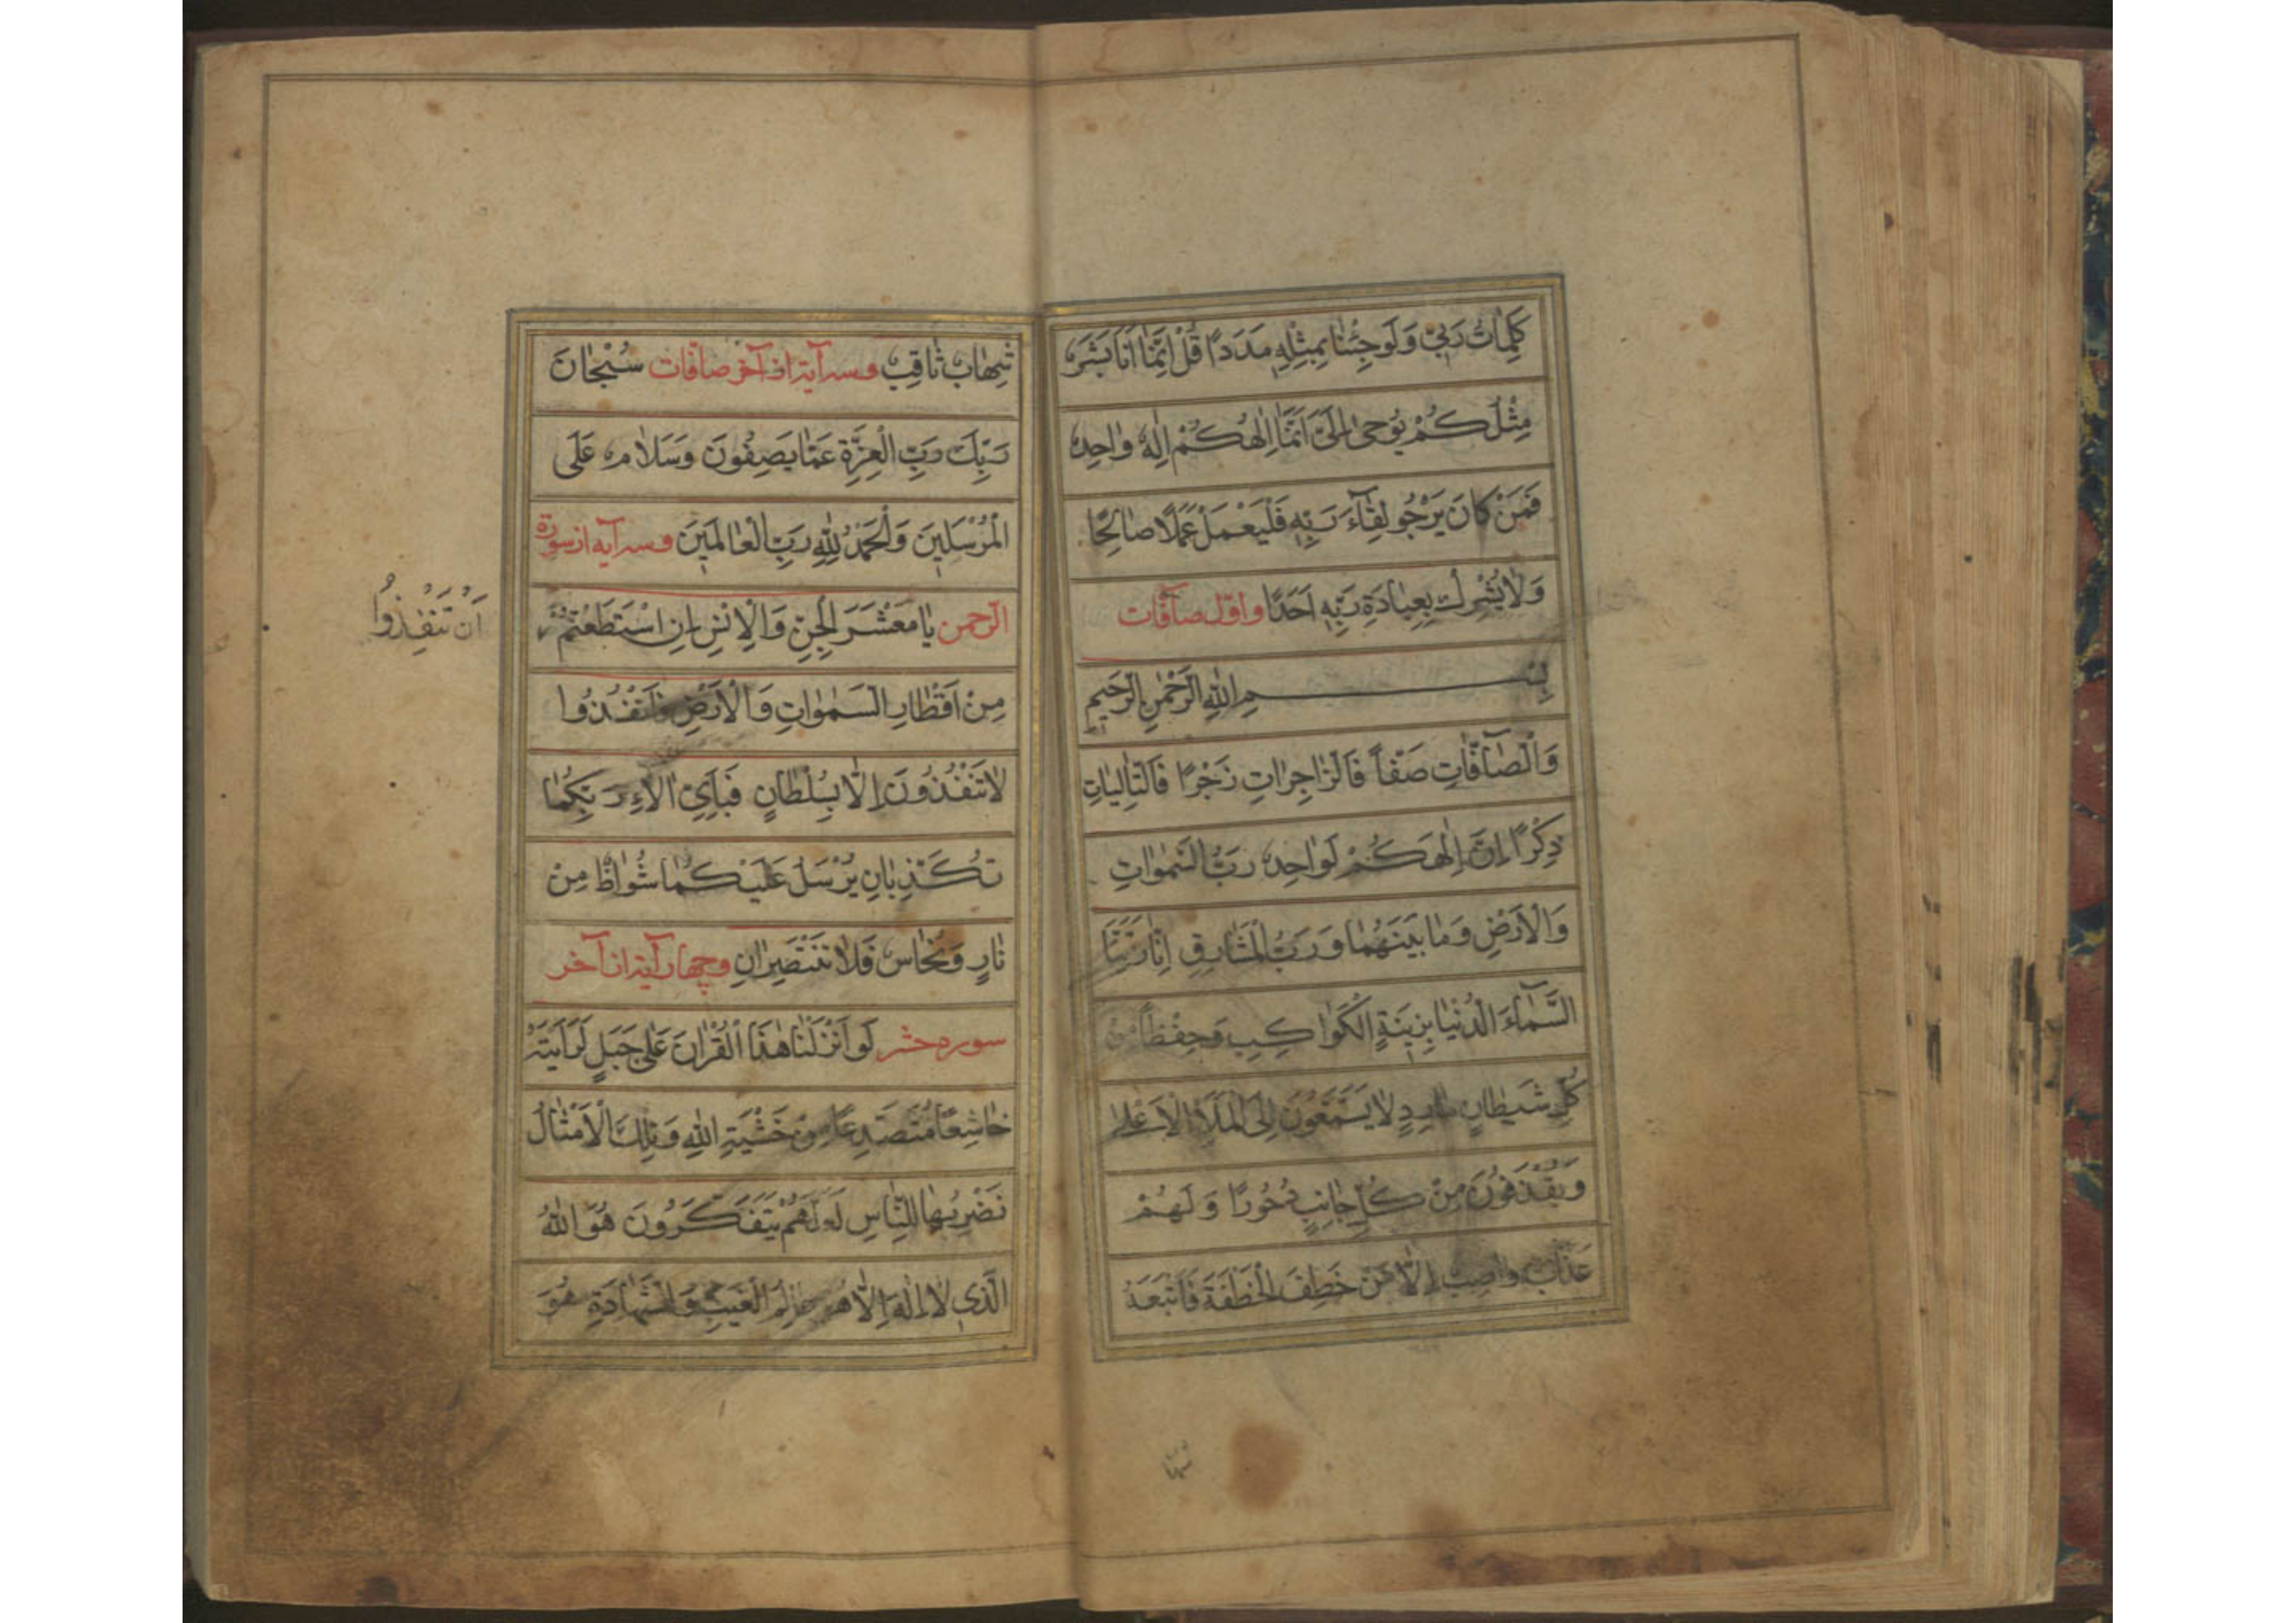 كَلِمَاتُ رَبِّي وَلَوْ جِئْنَا بِمِثْلِهِ مَدَدًا قُلْ إِنَّمَا أَنَا بَشَرٌ
مِثْلُكُمْ يُوحَى إِلَيَّ أَنَّمَا إِلٰهُكُمْ إِلٰهٌ وَاحِدٌ
فَمَنْ كَانَ يَرْجُو لِقَآءَ رَبِّهِ فَلْيَعْمَلْ عَمَلًا صَالِحًا
وَلَا يُشْرِكْ بِعِبَادَةِ رَبِّهِ أَحَدًا و اوّل صآفّات
بِسْمِ اللهِ الرَّحْمٰنِ الرَّحِيمِ
وَالصَّآفَّاتِ صَفّاً فَالزَّاجِرَاتِ زَجْرًا فَالتَّالِيَاتِ
ذِكْرًا إِنَّ إِلٰهَكُمْ لَوَاحِدٌ رَبُّ السَّمٰوَاتِ
وَالْأَرْضِ وَمَا بَيْنَهُمَا وَرَبُّ الْمَشَارِقِ إِنَّا زَيَّنَّا
السَّمَآءَ الدُّنْيَا بِزِينَةٍ الْكَوَاكِبِ وَحِفْظاً مِنْ
كُلِّ شَيْطَانٍ مَارِدٍ لَا يَسَّمَّعُونَ إِلَى الْمَلَإِ الْأَعْلَى
وَيُقْذَفُونَ مِنْ كُلِّ جَانِبٍ دُحُورًا وَلَهُمْ
عَذَابٌ وَاصِبٌ إِلَّا مَنْ خَطِفَ الْخَطْفَةَ فَأَتْبَعَهُ
شها
شِهَابٌ ثَاقِبٌ و سه آیه از آخر صافّات سُبْحَانَ
رَبِّكَ رَبِّ الْعِزَّةِ عَمَّا يَصِفُونَ وَسَلَامٌ عَلَى
الْمُرْسَلِينَ وَالْحَمْدُ لِلّٰهِ رَبِّ الْعَالَمِينَ و سه آیه از سورة
الرّحمن يَا مَعْشَرَ الْجِنِّ وَالْإِنْسِ إِنِ اسْتَطَعْتُمْ
أَنْ تَنْفُذُوا
مِنْ أَقْطَارِ السَّمٰوَاتِ وَالْأَرْضِ فَانْفُذُوا
لَا تَنْفُذُونَ إِلَّا بِسُلْطَانٍ فَبِأَيِّ اٰلَاءِ رَبِّكُمَا
تُكَذِّبَانِ يُرْسَلُ عَلَيْكُمَا شُوَاظٌ مِنْ
نَارٍ وَنُحَاسٌ فَلَا تَنْتَصِرَانِ و چهار آیة از آخر
سوره حشر لَوْ أَنْزَلْنَا هٰذَا الْقُرْاٰنَ عَلَى جَبَلٍ لَرَأَيْتَهُ
خَاشِعًا مُتَصَدِّعًا مِنْ خَشْيَةِ اللهِ وَتِلْكَ الْأَمْثَالُ
نَضْرِبُهَا لِلنَّاسِ لَعَلَّهُمْ يَتَفَكَّرُونَ هُوَ اللهُ
الَّذِي لَا إِلٰهَ إِلَّا هُوَ عَالِمُ الْغَيْبِ وَالشَّهَادَةِ هُوَ